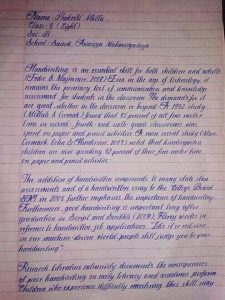 Name:- Prakriti Malla
Class: 8 (Eight)
Sec: B
School: Sainik Awasiya Mahavidyalaya
Handwriting is an essential skill for both children and adults
(Feder & Majnemer, 2007). Even in the age of technology, it
remains the primary tool of communication and knowledge
assessment for students in the classroom. The demands for it
are great, whether in the classroom or beyond. A 1992 study
(McHale & Cermak) found that 85 percent of all fine motor
time in second-, fourth- and sixth-grade classrooms was
spent on paper and pencil activities. A more recent study (Marr,
Cermak, Cohn & Henderson, 2003) noted that kindergarten
children are now spending 42 percent of their fine motor time
on paper and pencil activities.
The addition of handwritten components to many state stan
assessments and of a handwritten essay to the College Board
SAT in 2005 further emphasize the importance of handwriting.
Furthermore, good handwriting is important long after
graduation. In Script and Scribble (2009), Florey writes in
reference to handwritten job applications: "Like it or not, even
in our machine-driven world, people still judge you by your
handwriting."
Research literature extensively documents the consequences
of poor handwriting on early literacy and academic perform
Children who experience difficulty mastering this skill may